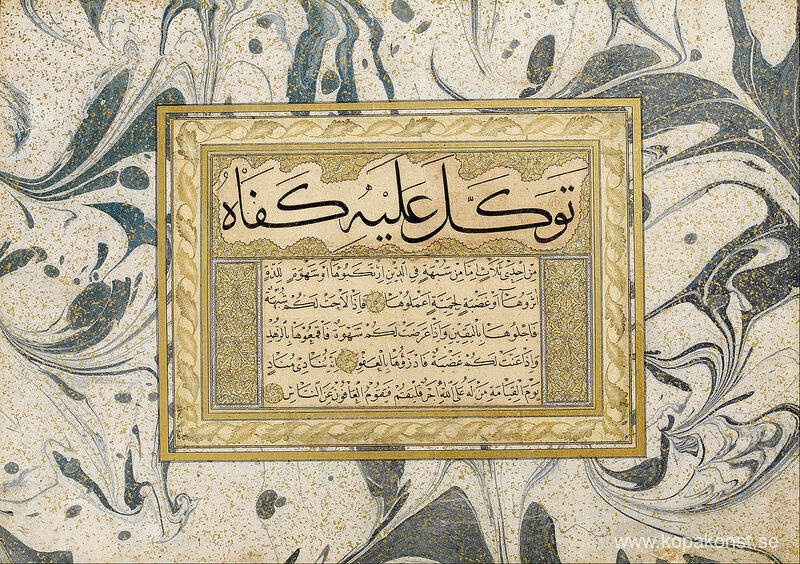 توكل عليه كفاه
من احدى ثلاث اما من شبهة في الدين ارتكبوها او شهوة للذة
آثروها او غضبة لحمية اعملوها فاذا لاحت لكم شبهة
فاجلوها باليقين واذا عرضت لكم شهوة فاقمعوها بالزهد
واذا عنت لكم غضبة فادرؤها بالعفو انه ينادي مناد
يوم القيامة من له على الله اجر فليقم فيقوم العافون عن الناس
www.kopakonst.se